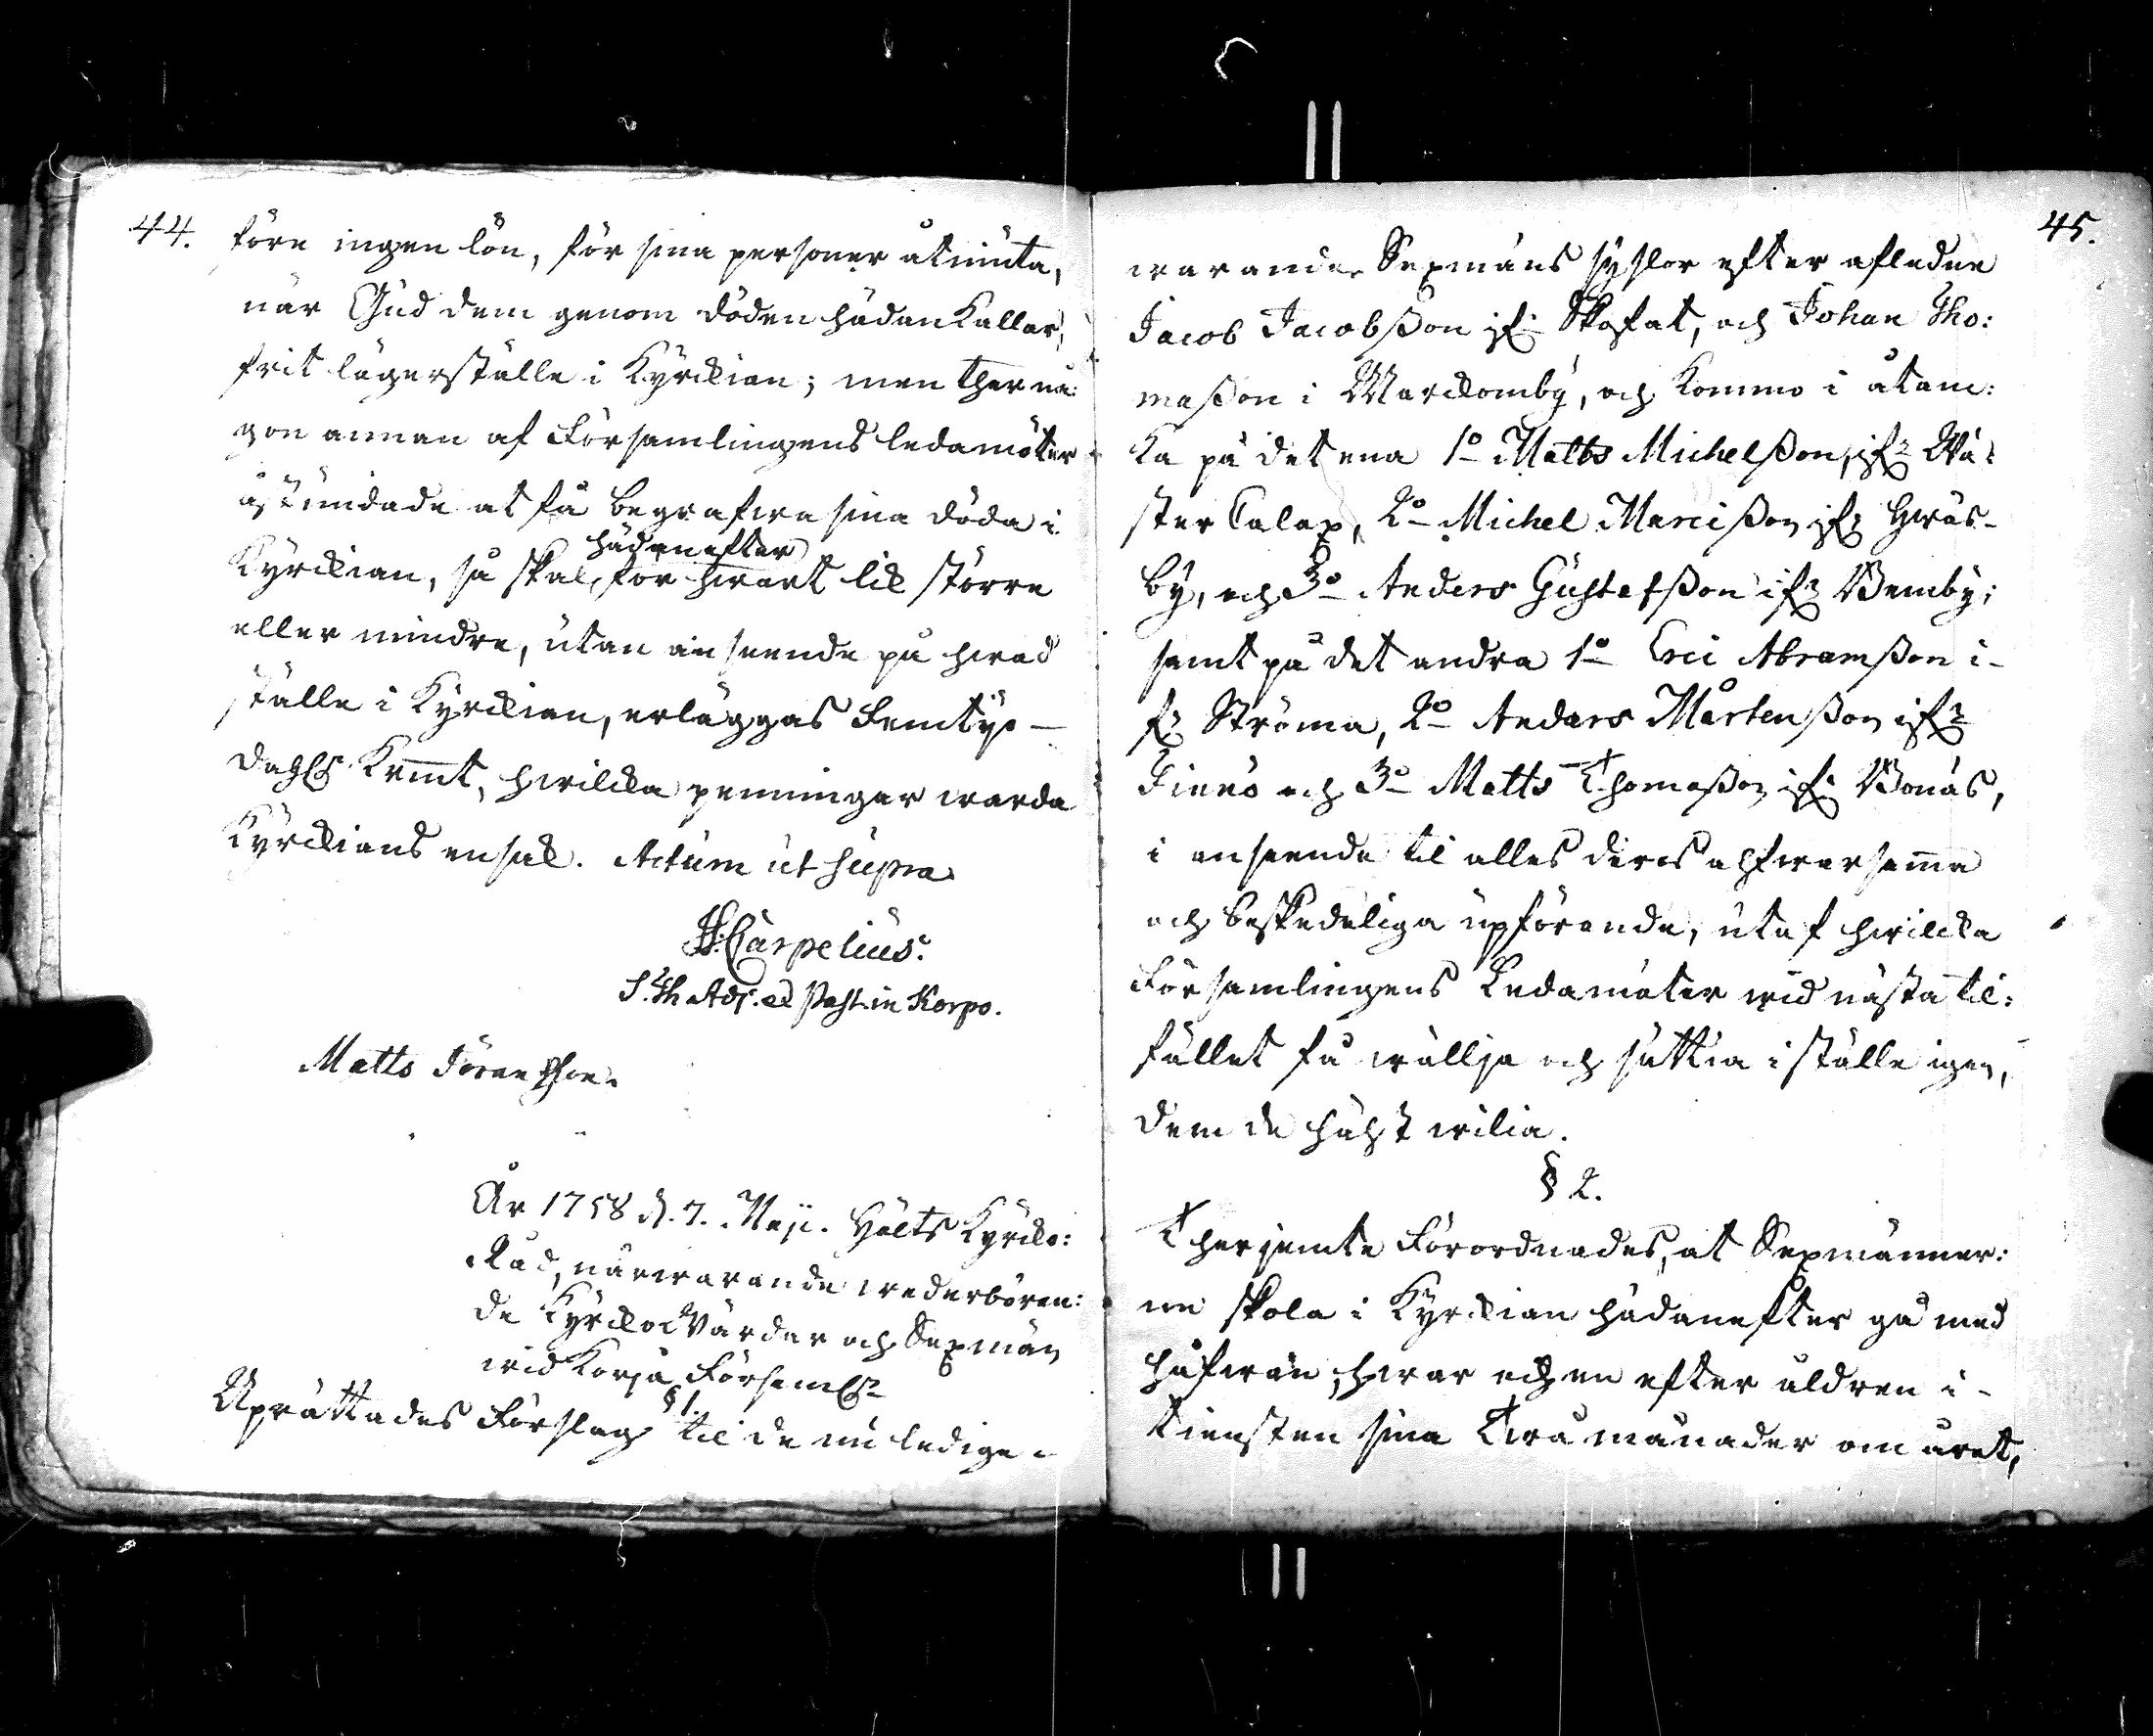 44.
före ingen lön, för sina personer åtniuta,
när Gud dem genom döden hädankallar,
frit lägerställe i Kyrckian; men ther nå:
gon annan af Församlingens ledamöter
åstundade at få begrafwa sina döda i
hädanefter
Kyrckian, så skal för hwart lik större
eller mindre, utan anseende på hwad
ställe i Kyrckian, erläggas Femtijo
dahlr Kmt, hwilcka penningar warda
Kyrckians ensak. Actum ut supra
Carpelius.
S. Th. Adj. et Past. in Korpo.
Matts Göransson.
År 1758 d. 7. Maji. Hölts Kyrcko:
Råd, närwarande wederbören:
de Kyrckowärdar och Sexmän
wid Korpå Församl:n
§ 1.
Uprättades Förslag til de nu ledige
45.
warande Sexmäns sysslor efter afledne
Jacob Jacobsson if: Skafat, och Johan Tho:
masson i Marckomby, och kommo i åtanc:
ka på det ena 1o Matts Michelsson, if: Wä:
ster Calax, 2o Michel Marcisson if: Hwäs-
by, och 3o Anders Gustafsson if: Wemby;
samt på det andra 1o Eric Abramsson i-
f: Ströma, 2o Anders Mårtensson if:
Finnö och 3o Matts Thomasson if: Bonäs,
i anseende til alles deras alfwarsamma
och beskedeliga upförande, utaf hwilcka
Församlingens Ledamöter wid nästa til:
fället få wällja och sättia i ställe igen,
dem de hälst wilia.
§ 2.
Therjemte Förordnades, at Sexmänner:
ne skola i Kyrckian hädanefter gå med
håfwan, hwar och en efter åldren i
tiensten sina Twå månader om året,